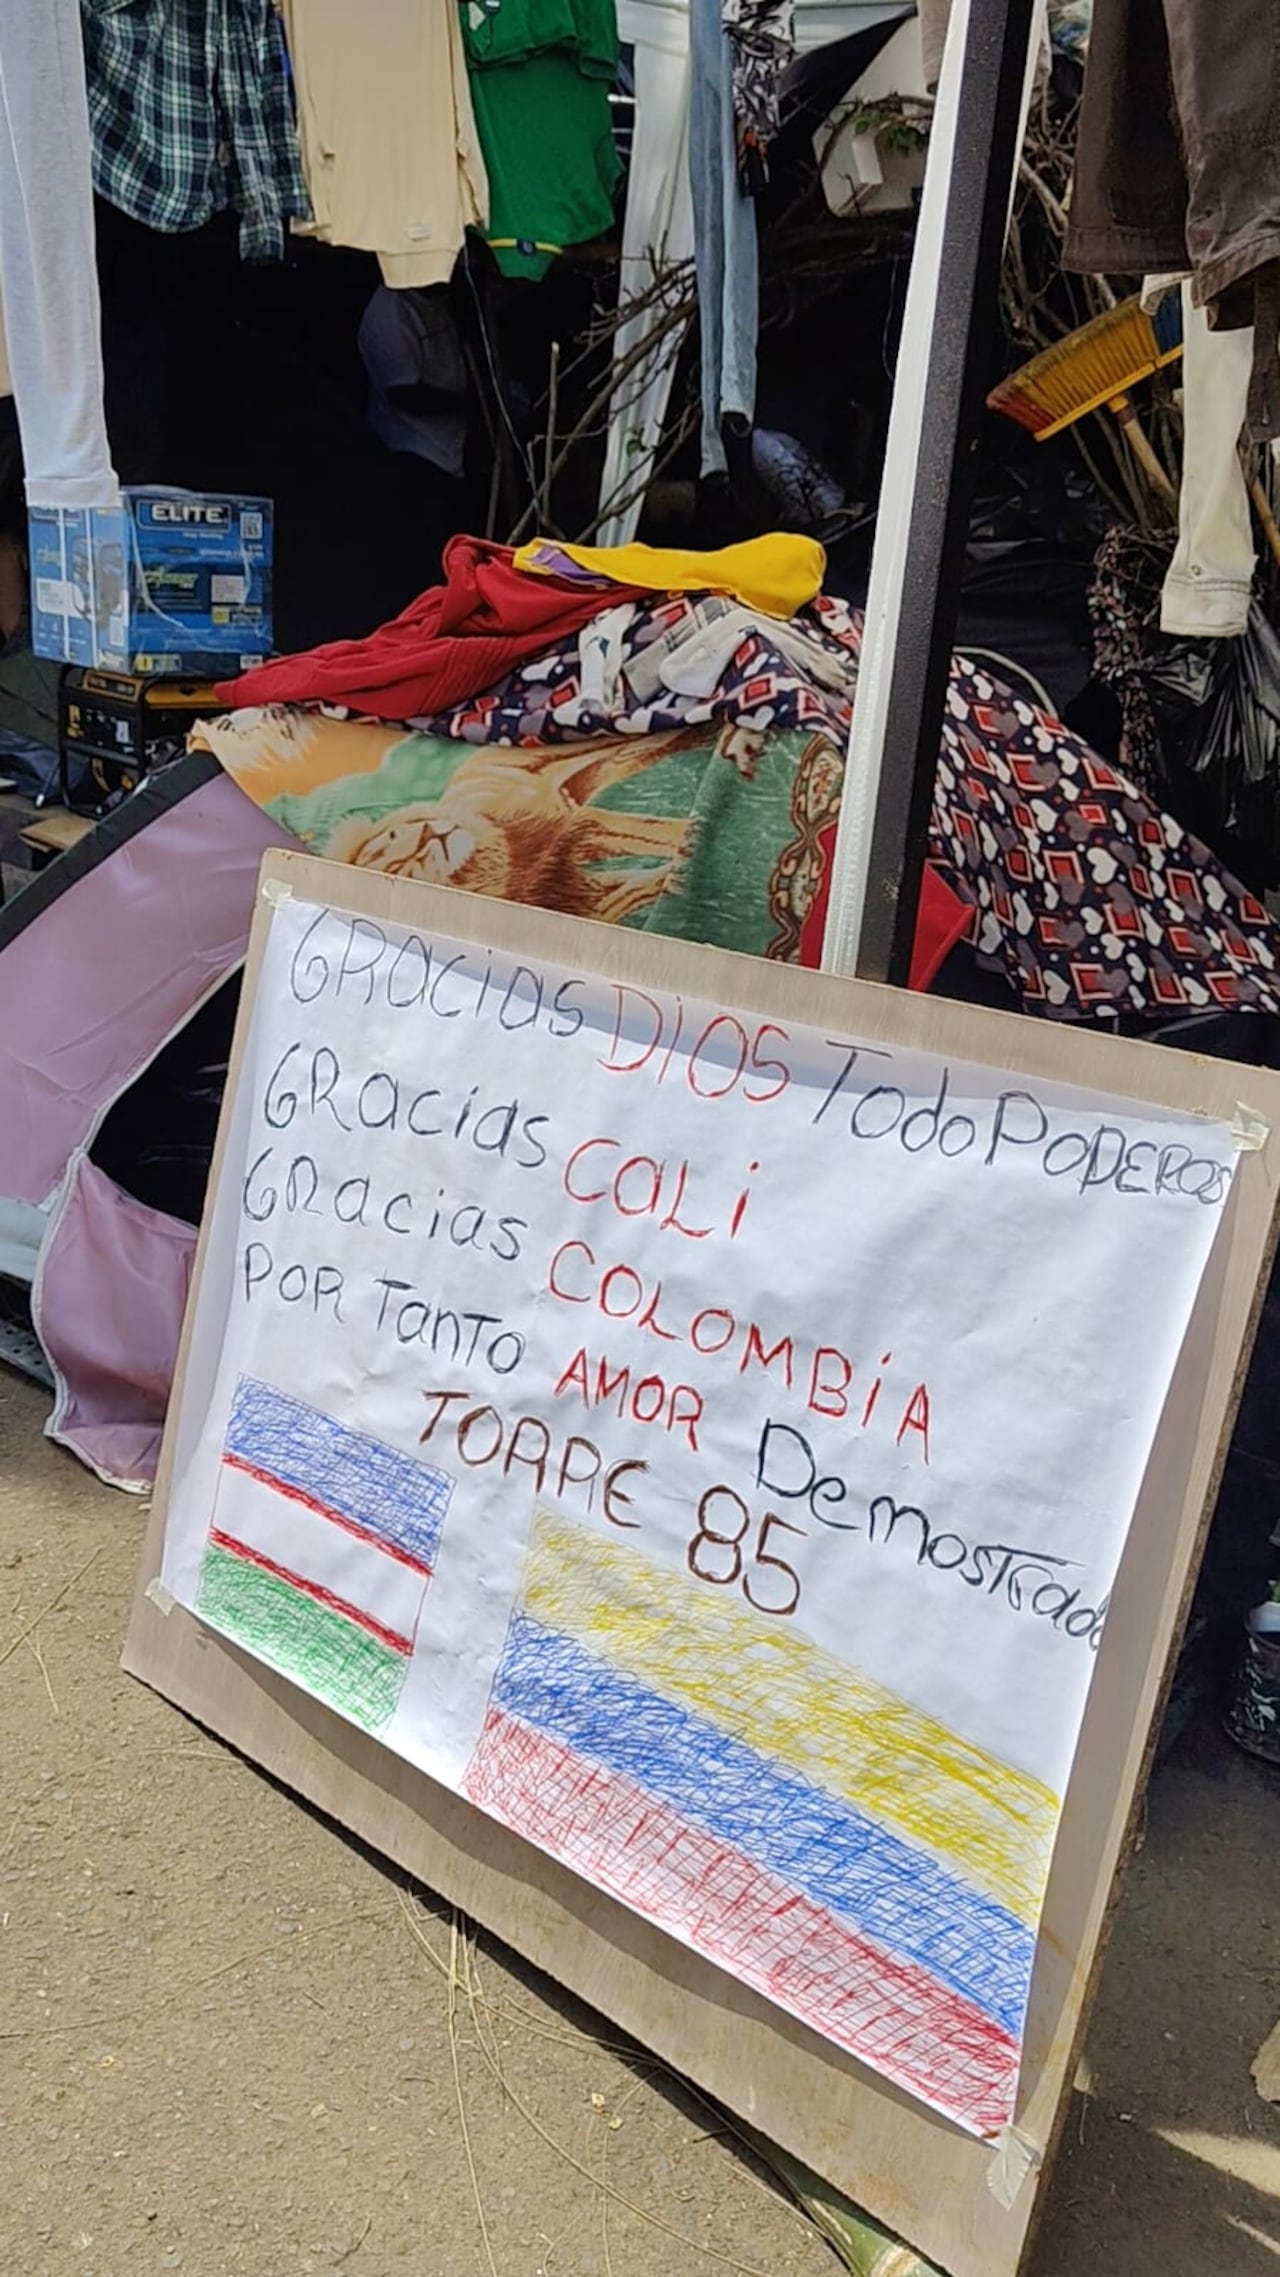 ELITE
GRacias DiOS TodoPoDEROS
GRacias CaLi
GRacias COLOMBiA
POR TanTO AMOR DemosTRado
TORRE 85